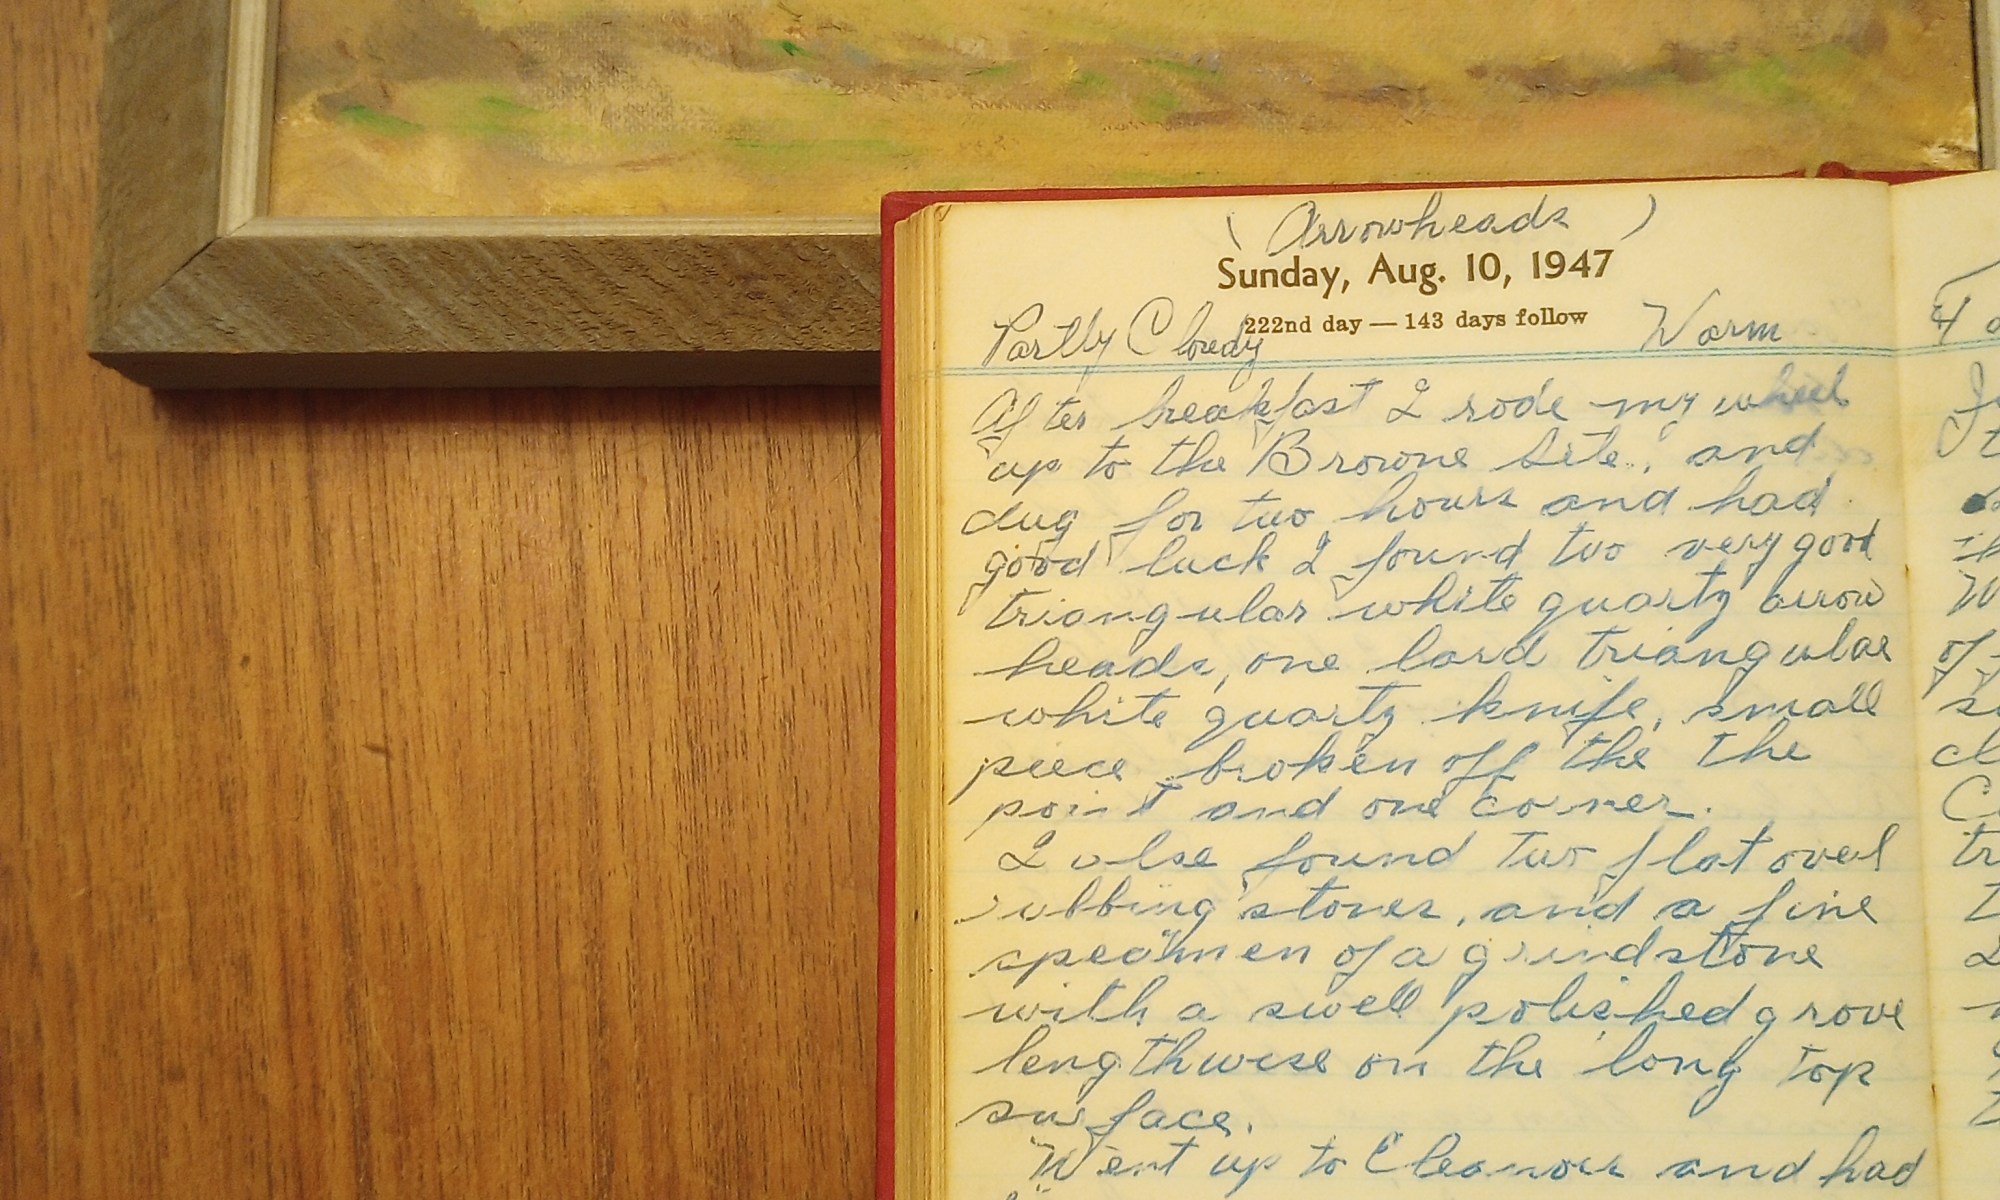 ( Arrowheads )
Sunday, Aug. 10, 1947
222nd day — 143 days follow
Partly Cloudy Warm
After breakfast I rode my wheel
up to the Browne Site, and
dug for two hours and had
good luck I found two very good
triangular white quartz arrow
heads, one triangular
white quartz knife, small
piece broken off the the
point and one corner.
I also found two flat oval
rubbing stones, and a fine
specimen of a grindstone
with a swell polished grove
lengthwise on the long top
surface.
Went up to Eleanors and had